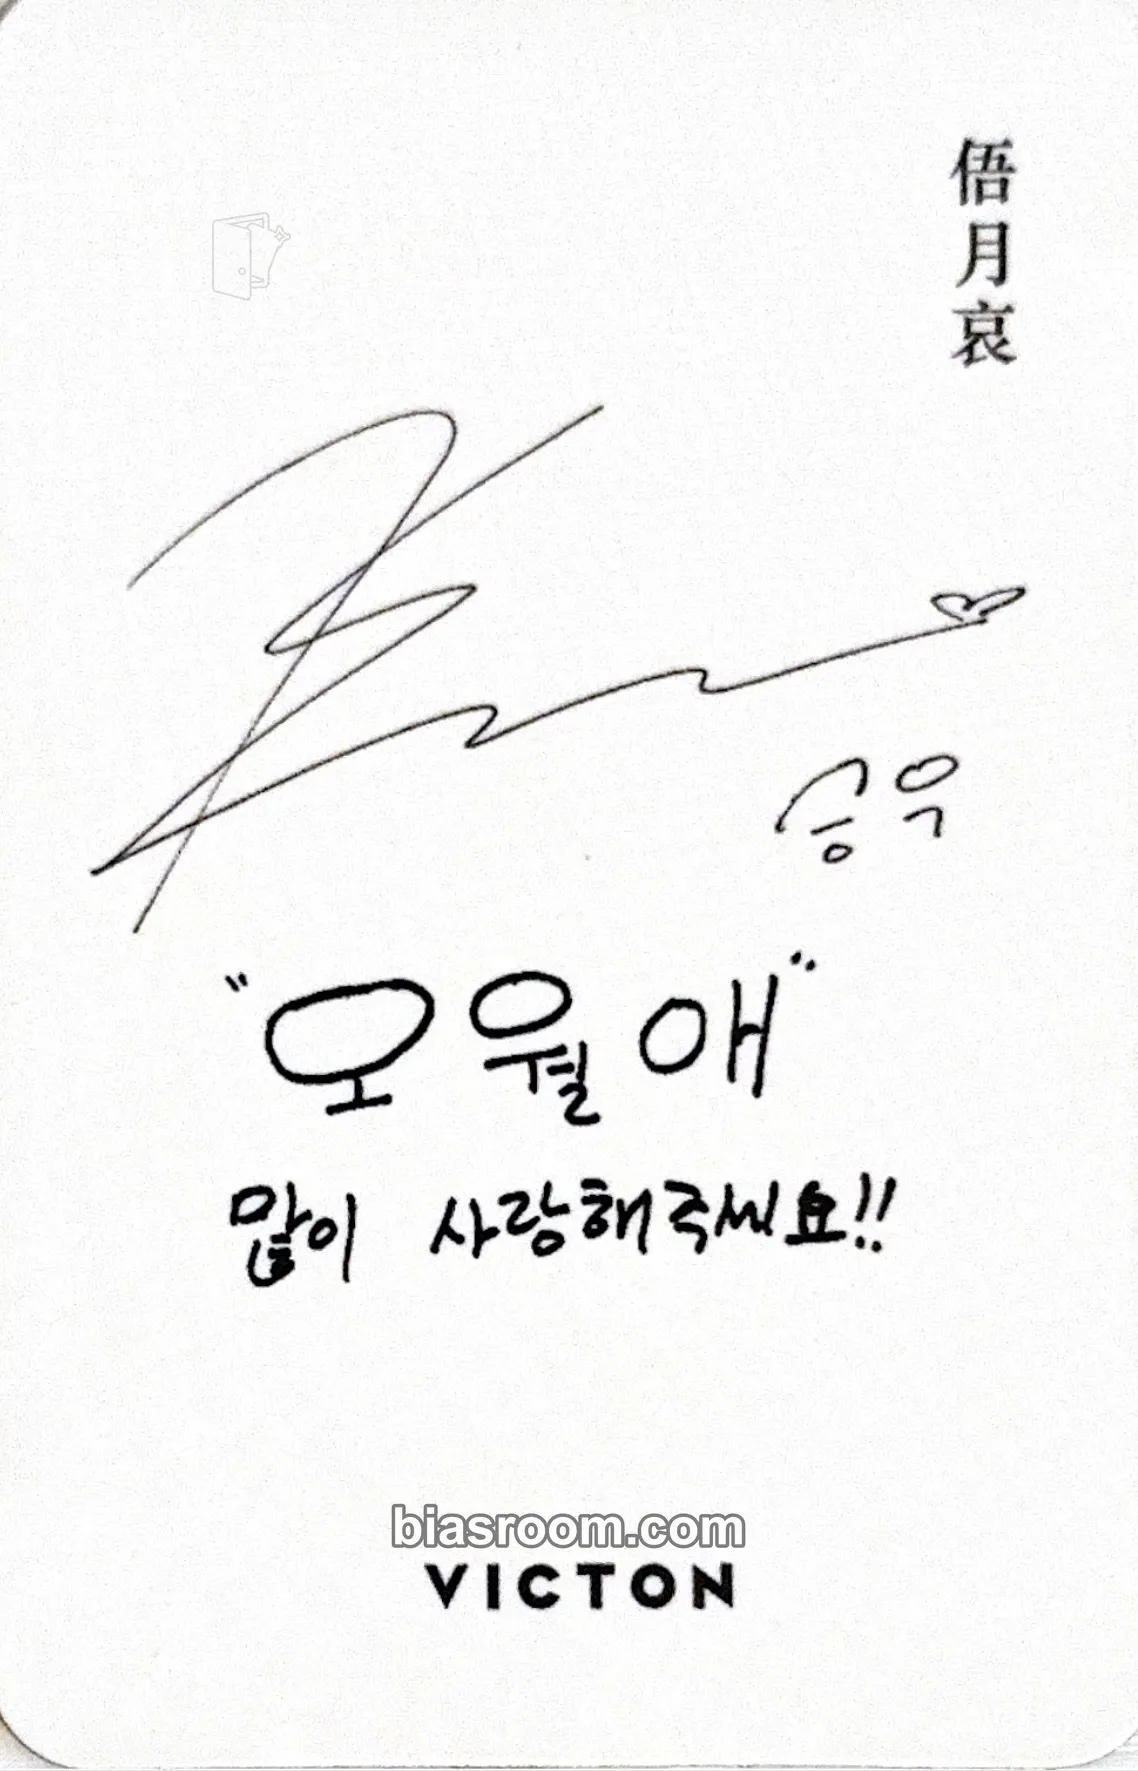 俉月哀
승우
"오월애"
많이 사랑해주세요!!
biasroom.com
VICTON